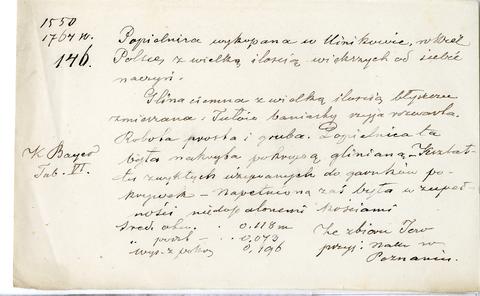 1550
1764 w.
146.
Popielnica wykopana w Unikowie, w Król.
Polsce z wielką ilością większych od siebie
naczyń.
Glina ciemna z wielką ilością błyszczu
zmieszana: Tułów baniasty szyja rozwarta.
Robota prosta i gruba. Popielnica ta
była nakryta pokrywą glinianą – Kształ-
tu zwykłych używanych do garnków po-
krywek – napełnioną zaś była w zupeł-
ności niedopalonemi kościami
K Bayer
Tab. VI.
Śred. otw. . . 0.118 m
" podst – . . 0,073
wys. z pokry 0,196
Ze zbioru Tow
przyj. nauk w
Poznaniu.